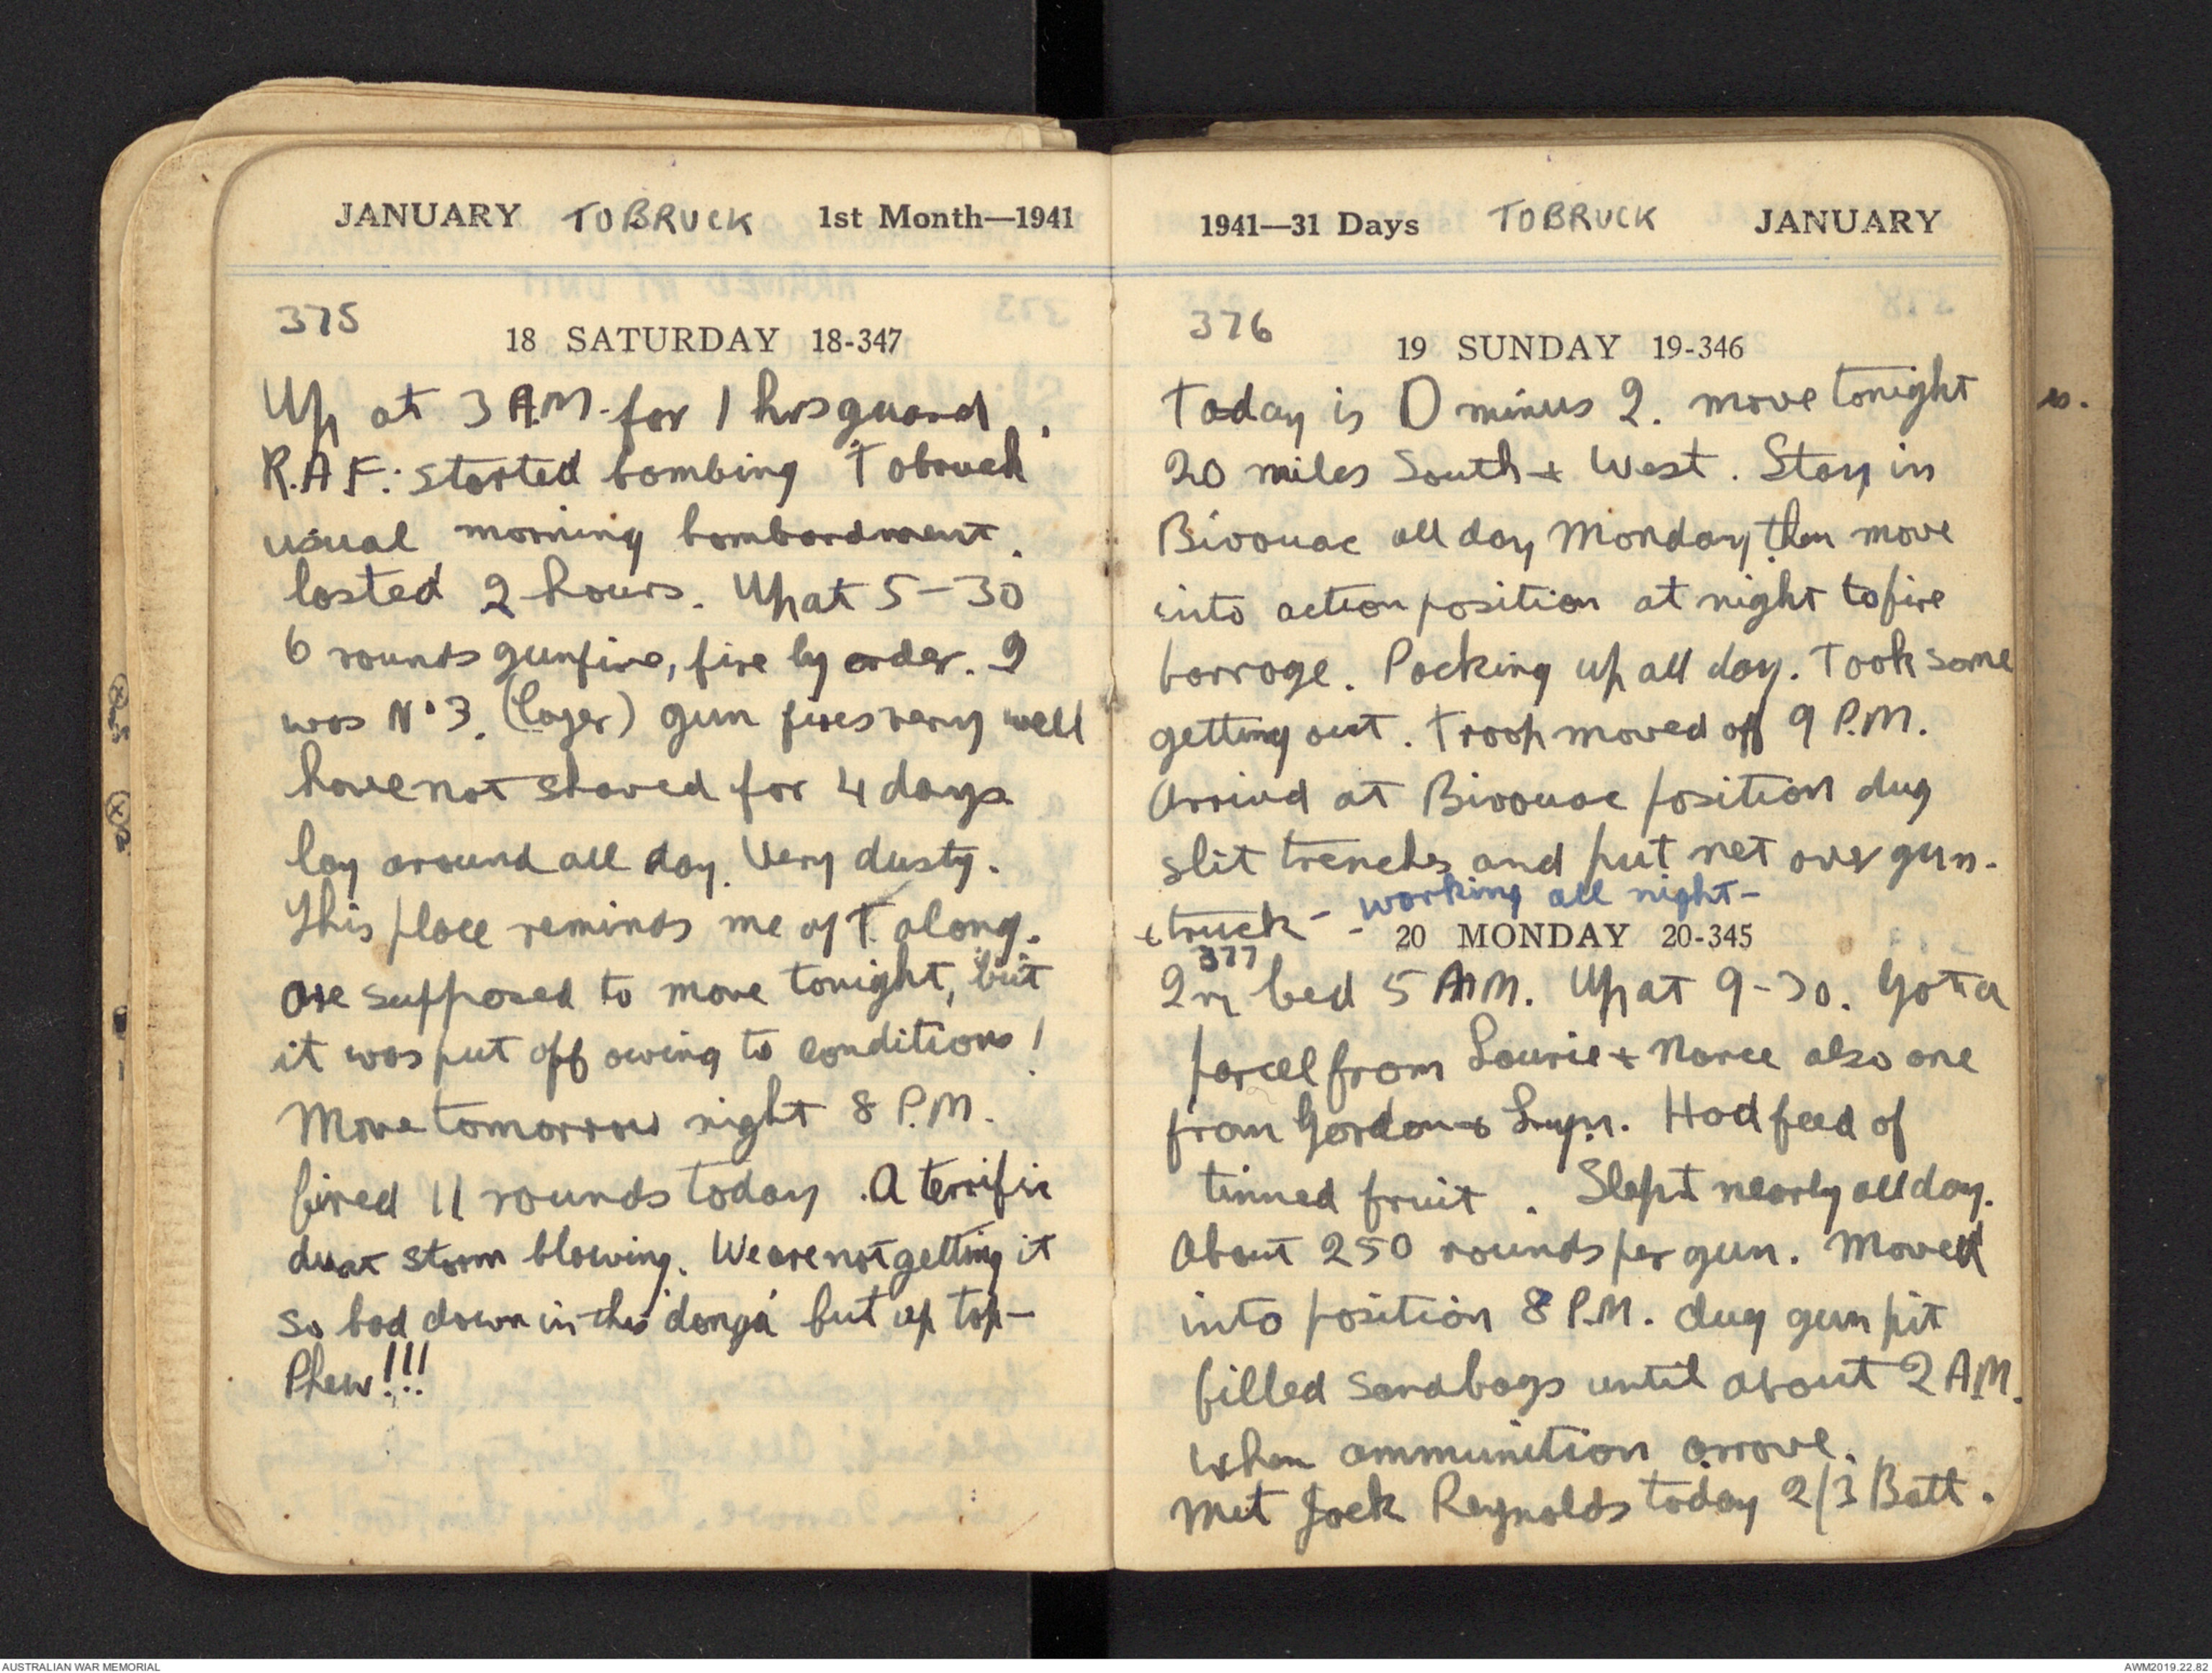 JANUARY TOBRUCK 1st Month—1941
375
18 SATURDAY 18-347
Up at 3 A.M. for 1 hrs guard.
R.A.F. started bombing Tobruck
usual morning bombardment.
lasted 2 hours. Up at 5-30
6 rounds gunfire, fire by order. I
was No 3. (layer) gun fires very well
have not shaved for 4 days
lay around all day. Very dusty.
This place reminds me of T. along.
are supposed to move tonight, but
it was put off owing to conditions!
Move tomorrow night 8 P.M.
fired 11 rounds today. A terrific
dust storm blowing. We are not getting it
so bad down in this 'donga' but up top—
Phew!!!
1941—31 Days TOBRUCK JANUARY
376
19 SUNDAY 19-346
Today is D minus 2. move tonight
20 miles South + West. Stay in
Bivouac all day Monday, then move
into action position at night to fire
barrage. Packing up all day. Took some
getting out. Troop moved off 9 P.M.
Arrived at Bivouac position dug
slit trenches and put net over gun.
+ truck - - working all night -
20 MONDAY 20-345
377
In bed 5 AM. Up at 9-30. Got a
parcel from Laurie + Narce also one
from Gordon + Lyn. Had feed of
tinned fruit. Slept nearly all day.
About 250 rounds per gun. Moved
into position 8 P.M. dug gun pit
filled sandbags until about 2 A.M.
when ammunition arrove.
Met Jack Reynolds today 2/3 Batt.
AUSTRALIAN WAR MEMORIAL
AWM2019.22.82